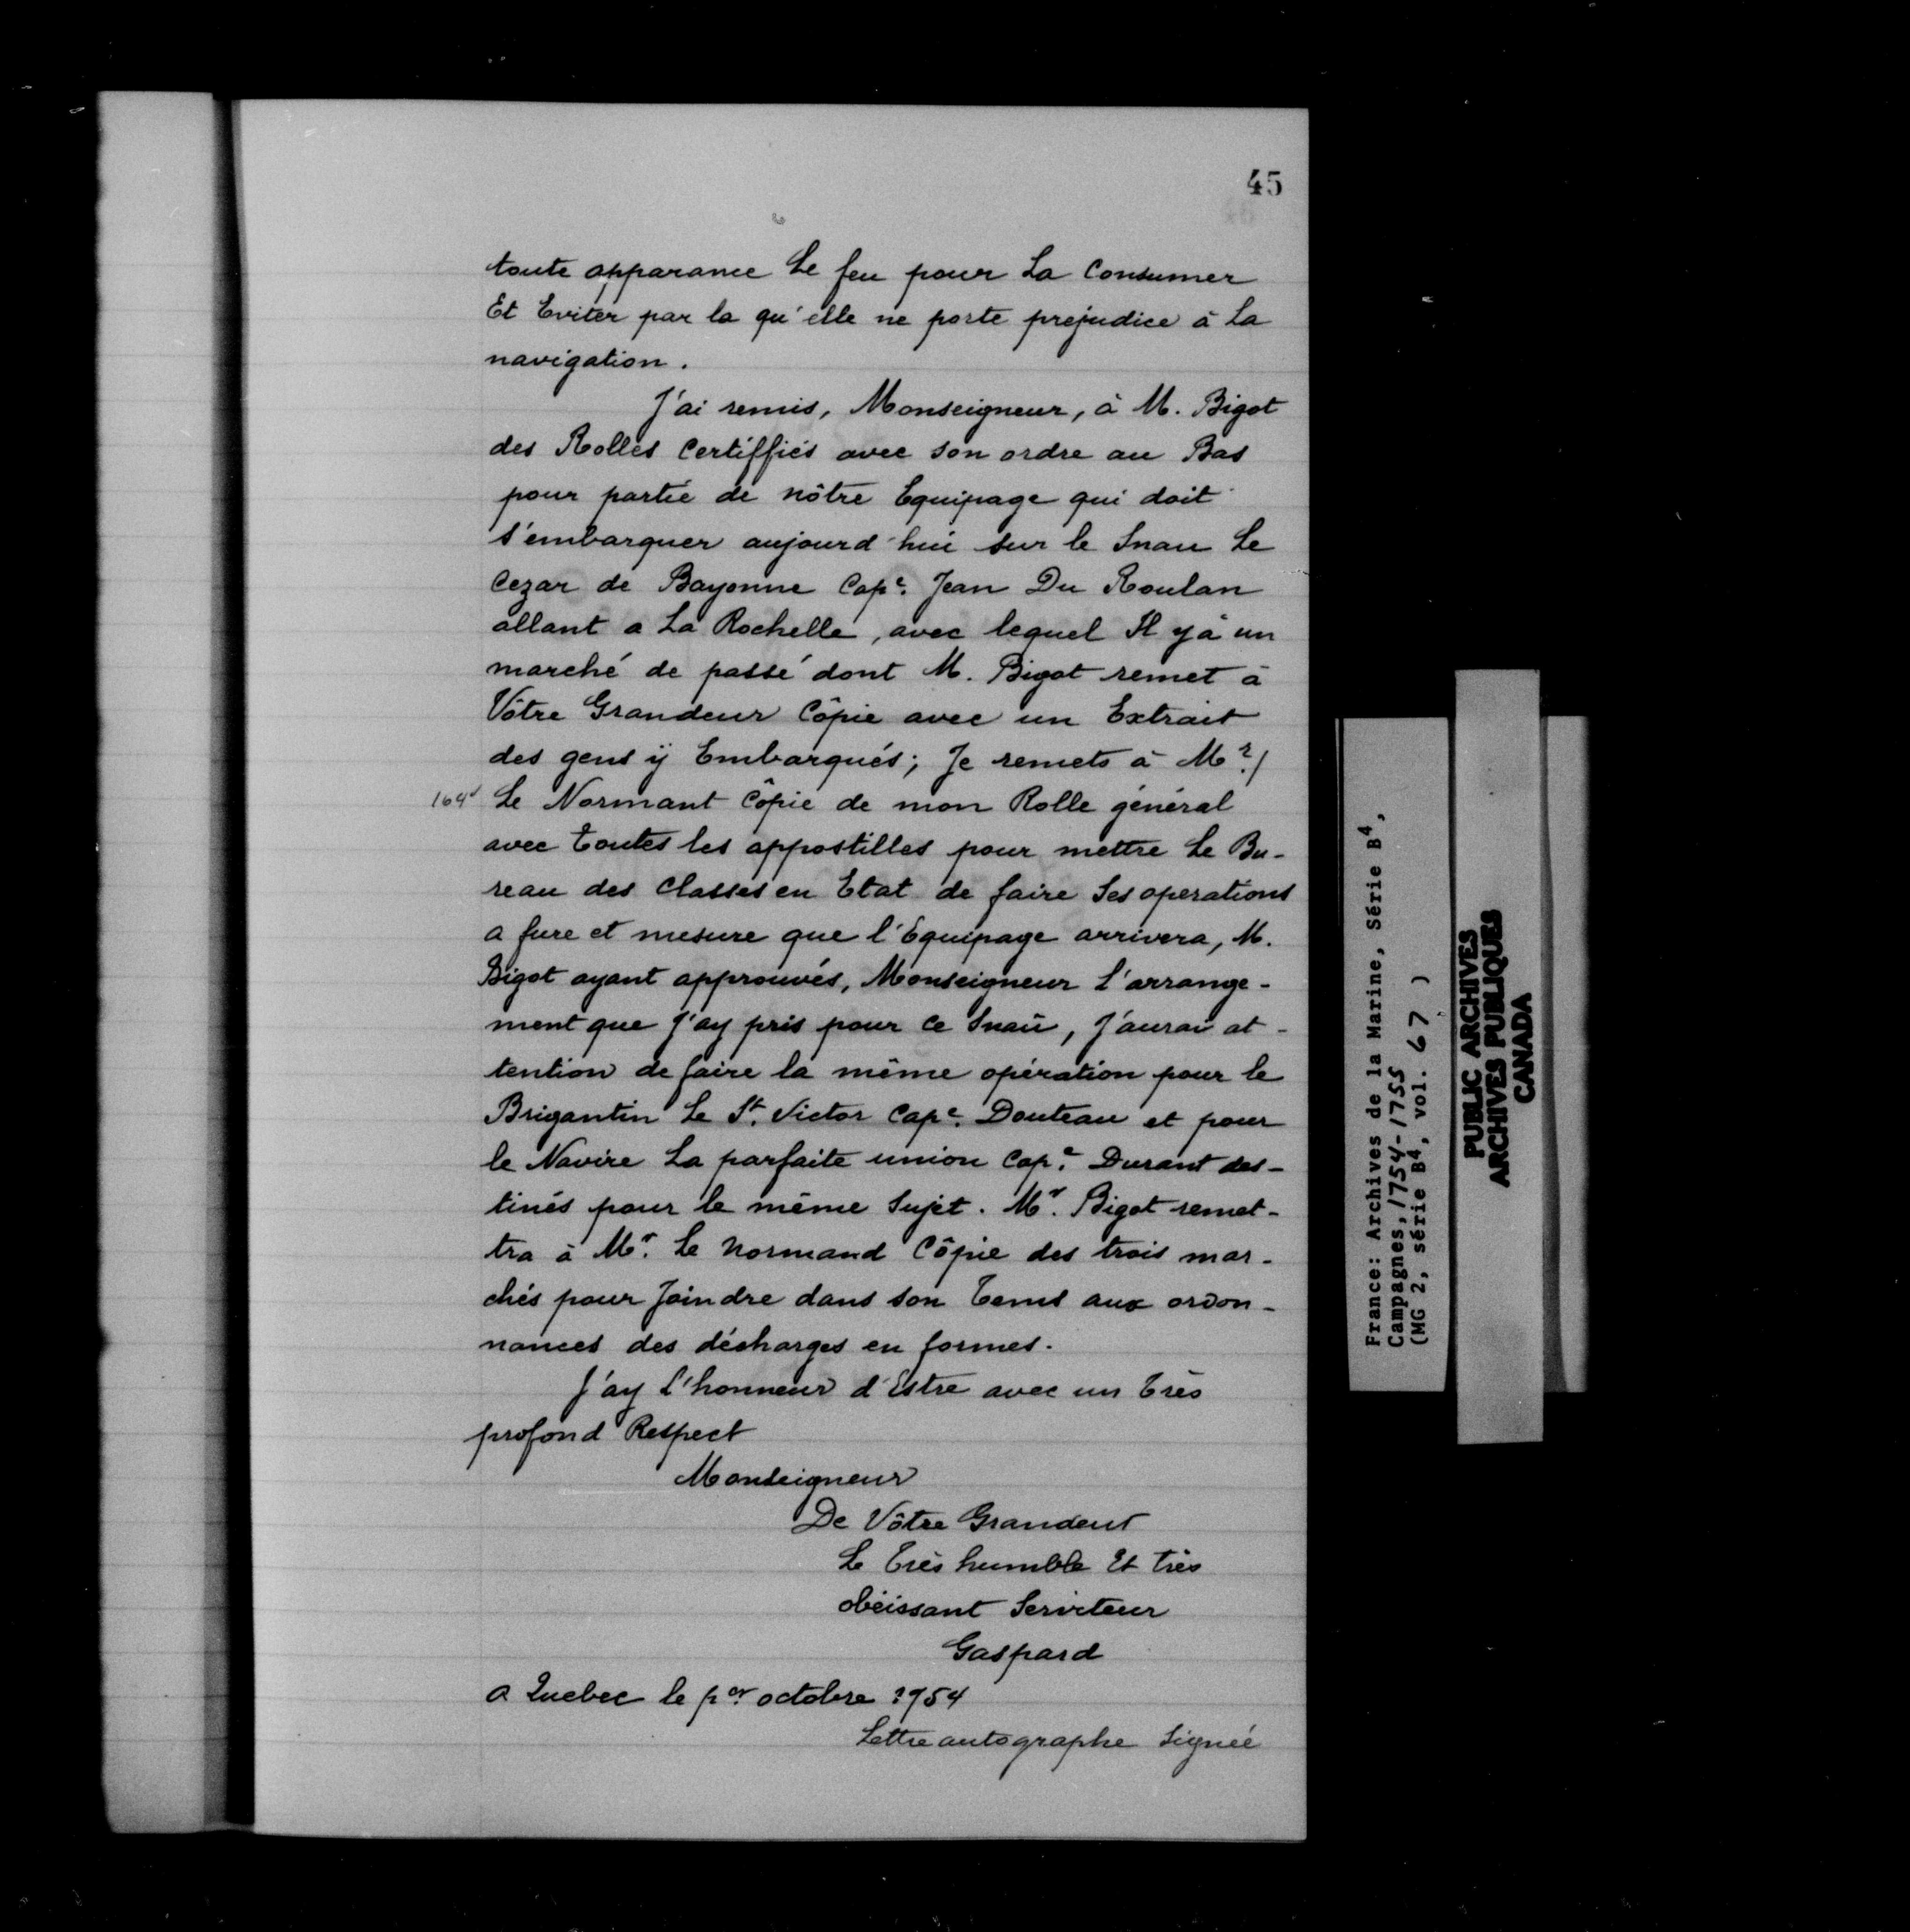 45
toute apparance Le feu pour La Consumer
Et Eviter par la qu'elle ne porte prejudice à La
navigation.
J'ai remis, Monseigneur, à M. Bigot
des Rolles Certiffiés avec son ordre au Bas
pour partie de nôtre Equipage qui doit
s'embarquer aujourd'hui sur le Snau Le
Cezar de Bayonne Cap.e Jean Du Roulan
allant a La Rochelle, avec lequel Il y à un
marché de passé dont M. Bigot remet à
Vôtre Grandeur Côpie avec un Extrait
des gens ÿ Embarqués; Je remets à M.r /
164v Le Normant Côpie de mon Rolle général
avec toutes les appostilles pour mettre Le Bu-
reau des Classes en Etat de faire Ses operations
a fure et mesure que l'Equipage arrivera, M.
Bigot ayant approuvés, Monseigneur L'arrange-
ment que J'ay pris pour Ce Snaü, J'aurai at-
tention de faire la même opération pour le
Brigantin Le St. Victor Cap.e Douteau et pour
le Navire La parfaite union Cap.e Durant des-
tinés pour le même Sujet. Mr. Bigot remet-
tra à Mr. Le Normand Côpie des trois mar-
chés pour Joindre dans son Tems aux ordon-
nances des décharges en formes.
J'ay L'honneur d'Estre avec un Très
profond Respect
Monseigneur
De Vôtre Grandeur
Le Très humble Et Très
obéissant Serviteur
Gaspard
A Quebec le p.er octobre 1754
Lettre autographe Signée
France: Archives de la Marine, Série B4,
Campagnes, 1754-1755
(MG 2, série B4, vol. 67 )
PUBLIC ARCHIVES
ARCHIVES PUBLIQUES
CANADA